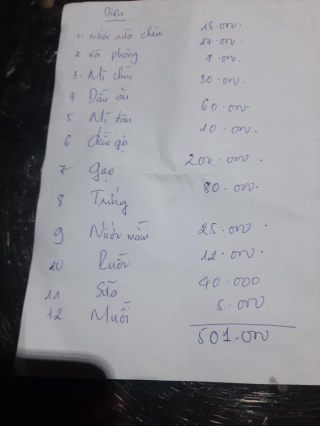 Diệu
1. Nước rửa chén 15.000
2 xà phòng 17.000
3. Mì chín 7.000
4 Dầu ăn 30.000
5 Mì tôm 60.000
6 dầu gội 10.000
7 gạo 200.000
8 Trứng 80.000
9 Nước mắm 25.000
10 Rượu 12.000
11 Sữa 40.000
12 Muối 5.000
501.000